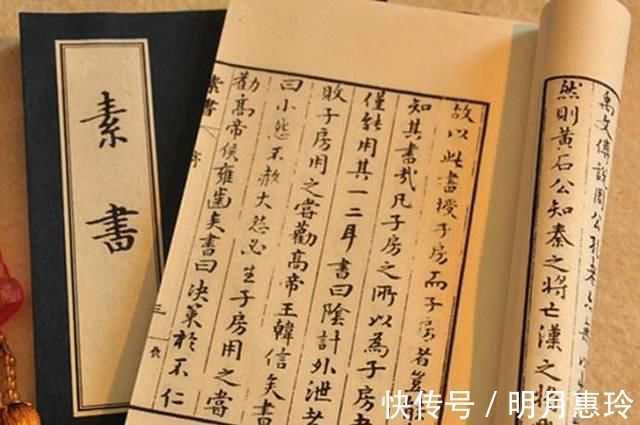 素書
禹文傅說周公孔老亦無以
然則黃石公知秦之將亡漢之將
故以此書授子房而子房者豈
知其書哉凡子房之所以為子房
僅能用其一二耳書曰陰計外泄者
敗子房用之嘗勸高帝王韓信矣書
曰小怨不赦大怨必生子房用之嘗
勸高帝侯雍齒矣書曰決策於不仁
素書 序 三
快传号 / 明月惠玲